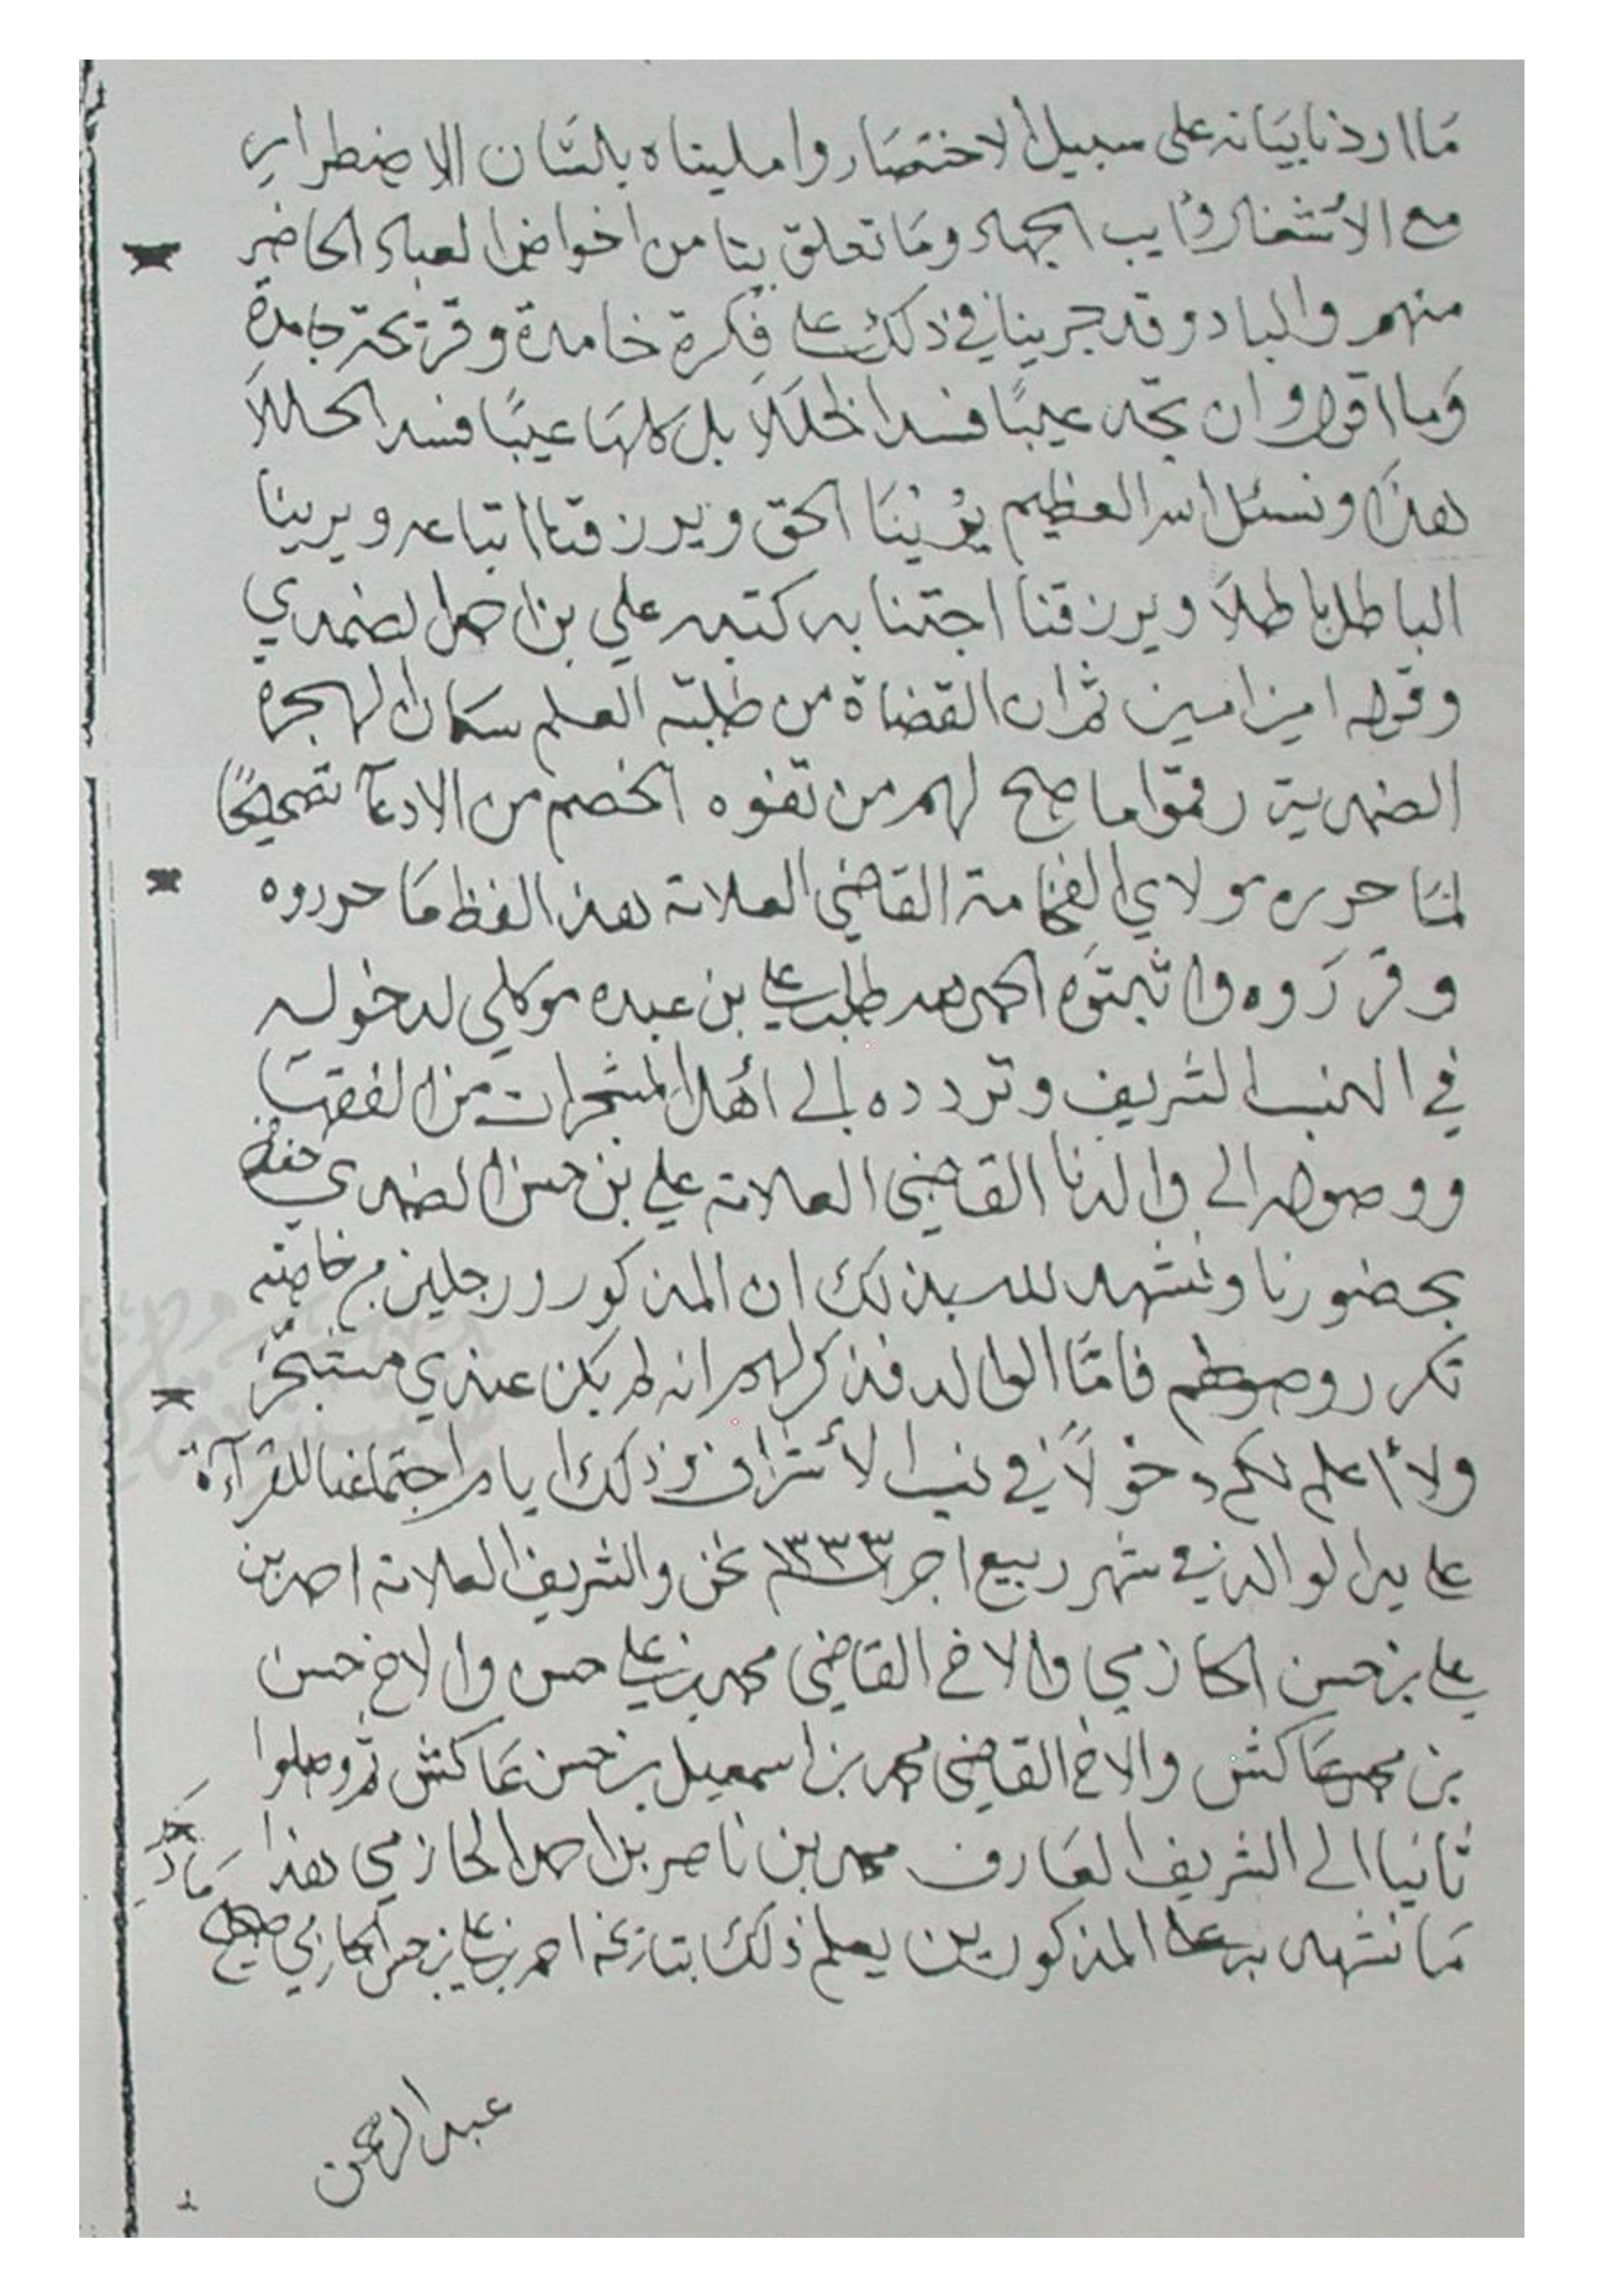 ما اردنا بيانه على سبيل الاختصار وامليناه بلسان الاضطرار
مع الاشتغال الجهاد وما تعلق بنا من اخواض العباد الحاضر
منهم والباد وقد جرينا في ذلك على فكرة خامدة وقريحة جامدة
وما اقول وان تجد عيبًا فسد الخللا بل كلها عيبًا فسد الخللا
هذا ونسئل الله العظيم يرينا الحق ويرزقنا اتباعه ويرينا
الباطل باطلاً ويرزقنا اجتنابه كتبه علي بن احمد الضمدي
وقوله امين امين ثم ان القضاة من طلبة العلم سكان الهجرة
الضمدية رقموا ما صح لهم من تفوه الخصم من الادعآ تصحيحًا
لما حرره مولاي الفخامة القاضي العلامة هذا لفظ ما حرروه
وقرروه واثبتوه الحمد لله طلب علي بن عبده موكلي لدخوله
في النسب الشريف وتردده إلى أهل المشجرات من الفقهآ
ووصوله الى والدنا القاضي العلامة علي بن حسن الضمدي حفظه
بحضورنا ونشهد لله بذلك ان المذكور ورجلين من خاصته
تكرر وصولهم فامّا الوالد فذكر لهم انه لم يكن عندي مشجر
ولا أعلم لكم دخولاً في نسب الأشراف وذلك ايام اجتماعنا للقرآءة
على يد الوالد في شهر ربيع اخر ١٣٣٣ نحن والشريف العلامة احمد بن
علي بن حسن الحازمي والاخ القاضي محمد بن علي حسن والاخ حسن
بن محمد عاكش والاخ القاضي محمد بن اسمعيل بن حسن عاكش ثم وصلوا
ثانيا الى الشريف العارف محمد بن ناصر بن احمد الحازمي هذا
ما نشهد به على المذكورين يعلم ذلك بتاريخه احمد بن علي بن حسن الحازمي صحيح
عبدالرحمن